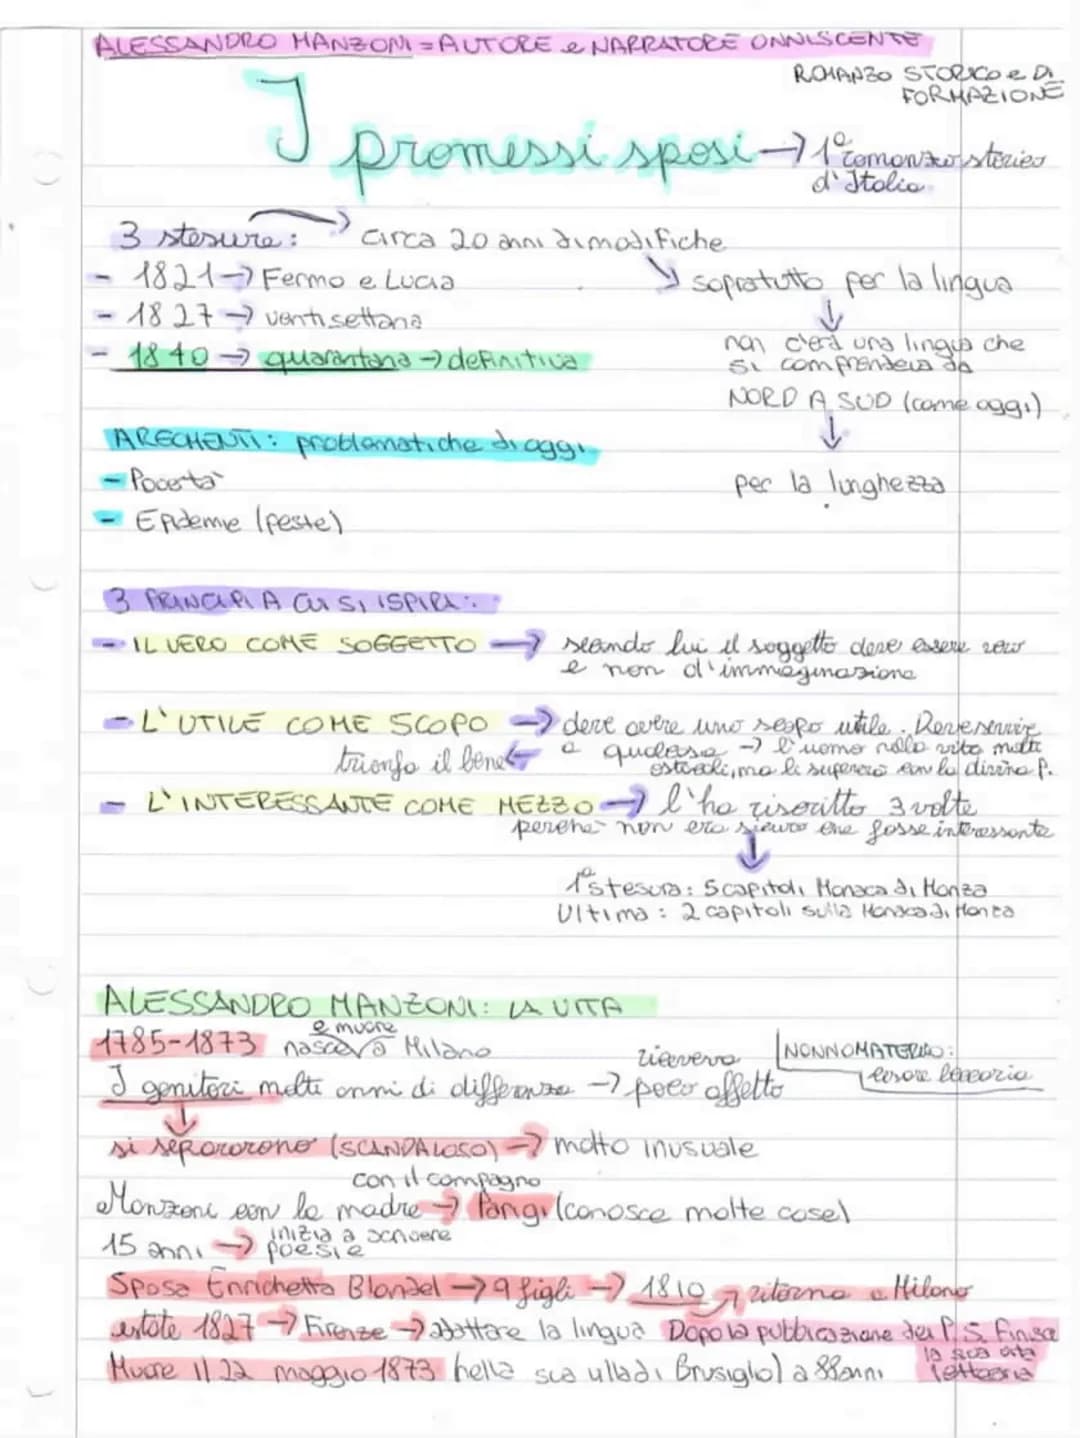 ALESSANDRO MANZONI = AUTORE e NARRATORE ONNISCENTE
ROMANZO STORICO e DI
FORMAZIONE
I promessi sposi → 1° romanzo storico
d'Italia
3 stesure: → circa 20 anni di modifiche
- 1821 → Fermo e Lucia
↘ sopratutto per la lingua
- 1827 → ventisettana
- 1840 → quarantana → definitiva
non c'era una lingua che
si comprendeva da
NORD A SUD (come oggi)
ARGOMENTI: problematiche di oggi
- Povertà
per la lunghezza
- Epidemie (peste)
3 PRINCIPI A CUI SI ISPIRA:
- IL VERO COME SOGGETTO → secondo lui il soggetto deve essere vero
e non d'immaginazione
- L'UTILE COME SCOPO → deve avere uno scopo utile. Deve servire
trionfa il bene ← a qualcosa → l'uomo nella vita molti
ostacoli, ma li supererà con la divina P.
- L'INTERESSANTE COME MEZZO → l'ha riscritto 3 volte
perché non era sicuro che fosse interessante
1° stesura: 5 capitoli Monaca di Monza
Ultima: 2 capitoli sulla Monaca di Monza
ALESSANDRO MANZONI: LA VITA
e muore
1785-1873 nasce a Milano
riceveva
NONNO MATERNO:
I genitori molti anni di differenza → poco affetto
Cesare Beccaria
si separarono (SCANDALOSO) → molto inusuale
con il compagno
Manzoni con la madre → Parigi (conosce molte cose)
15 anni → inizia a scrivere
poesie
Sposa Enrichetta Blondel → 9 figli → 1810 → ritorna a Milano
estate 1827 → Firenze → adattare la lingua Dopo la pubblicazione dei P.S. finisce
la sua vita
letteraria
Muore il 22 maggio 1873 (nella sua villa di Brusiglio) a 88 anni